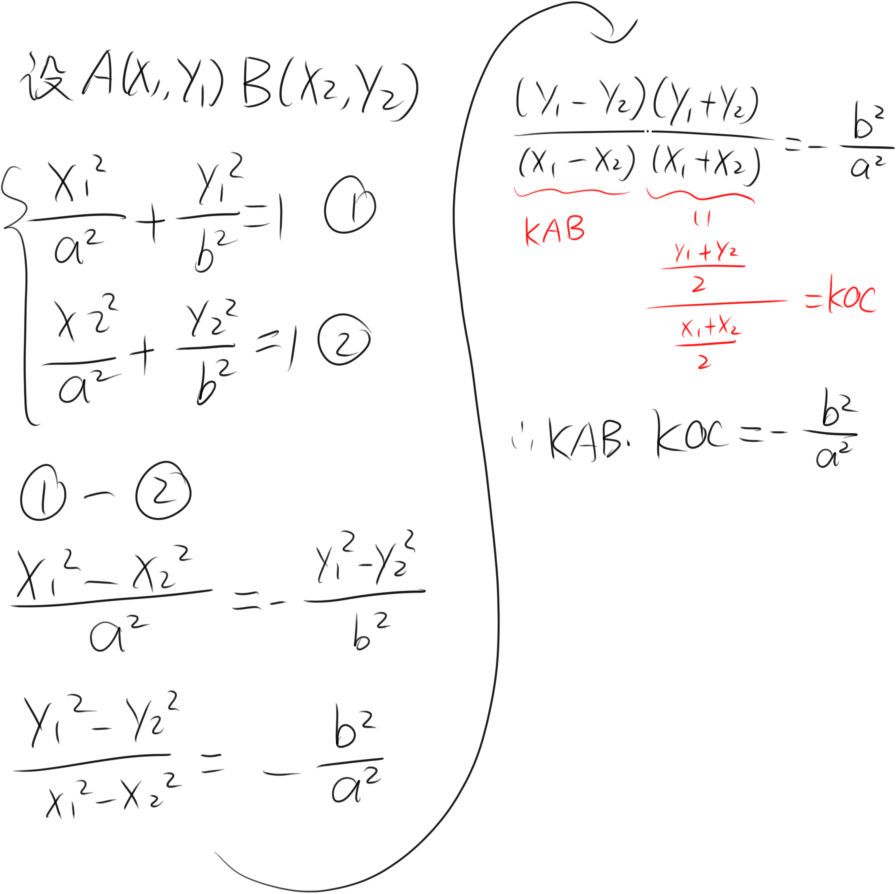 设 A(x₁,y₁) B(x₂,y₂)
x₁²/a² + y₁²/b² = 1 ①
x₂²/a² + y₂²/b² = 1 ②
① - ②
(x₁² - x₂²)/a² = - (y₁² - y₂²)/b²
(y₁² - y₂²)/(x₁² - x₂²) = - b²/a²
(y₁ - y₂)(y₁ + y₂)/(x₁ - x₂)(x₁ + x₂) = - b²/a²
KAB
=
((y₁ + y₂)/2)/((x₁ + x₂)/2) = KOC
∴ KAB · KOC = - b²/a²